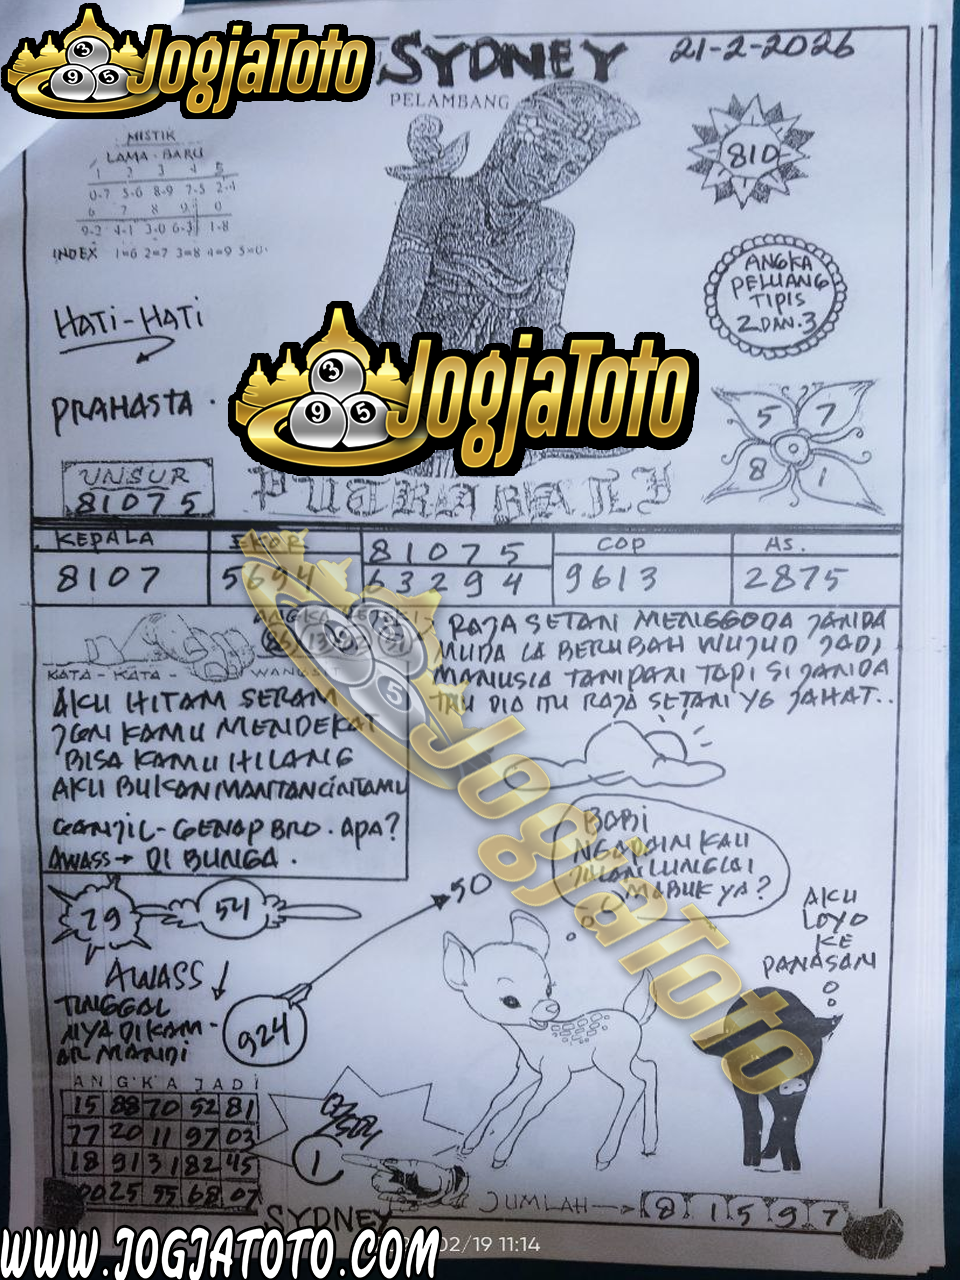 JogjaToto
SYDNEY
21-2-2026
PELAMBANG
MISTIK
LAMA - BARU
1 2 3 4 5
0-7 5-6 8-9 7-5 2-4
6 7 8 9 0
9-2 4-1 3-0 6-3 1-8
INDEX 1=6 2=7 3=8 4=9 5=0
810
ANGKA
PELUANG
TIPIS
2 DAN .3
HATI-HATI
PRAHASTA .
JogjaToto
5 7
8 1
UNSUR
81075
PUTRA BALI
KEPALA
8107
EKOR
5694
81075
63294
COP
9613
AS.
2875
KATA - KATA - WANGS
AKU HITAM SERAM
JGN KAMU MENDEKAT
BISA KAMU HILANG
AKU BUKAN MANTAN CINTAMU
GANJIL - GENAP BRO . APA?
AWASS → DI BUNGA .
RAJA SETAN MENGGODA JANDA
MUDA LA BERUBAH WUJUD JADI
MANUSIA TAMPAN TAPI SI JANDA
TAU DIA ITU RAJA SETAN YG JAHAT..
JogjaToto
BABI
NGAPAIN KAU
JALAN LUNGLAI
MABUK YA?
AKU
LOYO
KE
PANASAN
79
54
50
AWASS
TINGGAL
NYA DI KAM -
AR MANDI
924
ANGKA JADI
15 88 70 52 81
77 20 11 97 03
18 91 31 82 45
00 25 55 68 07
1
JUMLAH → 8 1 5 9 7
SYDNEY
02/19 11:14
WWW.JOGJATOTO.COM